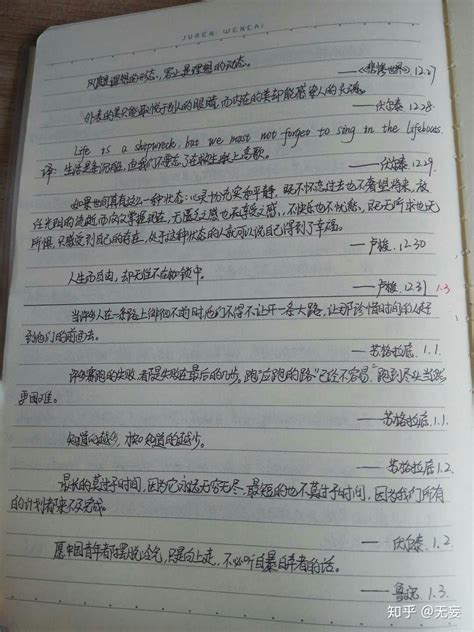 JUREN WENCAI
风度是理想的形态，容止是理想的动态。
——《悲惨世界》12.27
外表的美只能取悦于别人的眼睛，而内在的美却能感染人的灵魂。
——伏尔泰 12.28
Life is a shipwreck, but we must not forget to sing in the lifeboats.
译：生活是条沉船，但我们不要忘了在救生艇上高歌。
——伏尔泰 12.29.
如果世间真有这么一种状态：心灵十分充实和宁静，既不怀恋过去也不奢望将来，放
任光阴的流逝而仅仅掌握现在，无匮乏之感也无享受之感，不快乐也不忧愁，既无所求也无
所惧，只感受到自己的存在，处于这种状态的人就可以说自己得到了幸福。
——卢梭 12.30
人生而自由，却无往不在枷锁中。
——卢梭 12.31 1.3
当许多人在一条路上徘徊不前时，他们不得不让开一条大路，让那珍惜时间的人赶
到他们的前面去。
——苏格拉底 1.1.
许多赛跑的失败，都是失败在最后的几步。跑"应跑的路"已经不容易，"跑到尽头"当然
更困难。
——苏格拉底 1.1.
知道的越多，才知知道的越少。
——苏格拉底 1.2
最长的莫过于时间，因为它永远无穷无尽，最短的也不莫过于时间，因为我们所有
的计划都来不及完成。
——伏尔泰 1.2.
愿中国青年都摆脱冷气，只是向上走，不必听自暴自弃者的话。
——鲁迅 1.3.
知乎 @无妄